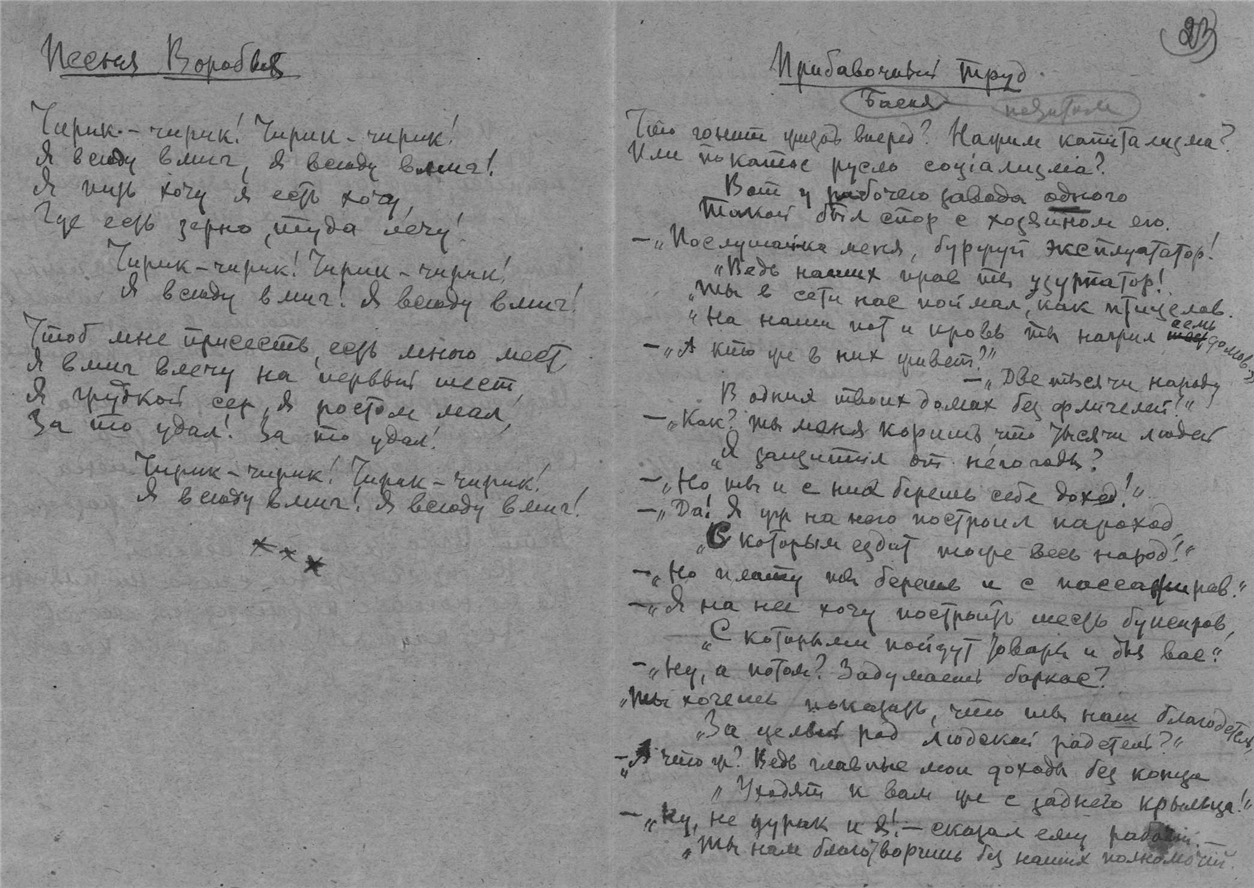 Песня Воробья
Чирик-чирик! Чирик-чирик!
Я всюду вмиг, я всюду вмиг!
Я пить хочу я есть хочу,
Где есть зерно, туда лечу!
Чирик-чирик! Чирик-чирик!
Я всюду вмиг! Я всюду вмиг!
Чтоб мне присесть, есть много мест,
Я вмиг влечу на первый шест
Я грудкой сер, я ростом мал,
За то удал! За то удал!
Чирик-чирик! Чирик-чирик!
Я всюду вмиг! Я всюду вмиг!
23
Прибавочный труд.
Басня
Что гонит жизнь вперед? Нажим капитализма?
Или покатое русло социализма?
Вот у рабочего завода одного
Такой был спор с хозяином его.
–„Послушай-ка меня, буржуй эксплуататор!
„Ведь наших прав ты узурпатор!
„Ты в сети нас поймал, как птицелов.
„На наши пот и кровь ты нажил семь домов!"
–„А кто же в них живет?"
–„Две тысячи народу
В одних твоих домах без флигелей!"
–„Как? ты меня коришь, что тысячи людей
„Я защитил от непогоды?
–„Но ты и с них берешь себе доход!"
–„Да! Я уж на него построил пароход,
„С которым ездит тоже весь народ!"
–„Но плату ты берешь и с пассажиров."
–„Я на нее хочу построить шесть буксиров,
„С которыми пойдут товары и для вас".
–„Ну, а потом? Задумаешь баркас?
„Ты хочешь показать, что ты наш благодетель,
„За целый род людской радетель?"
–„А что ж? Ведь главные мои доходы без конца
„Уходят к вам же с заднего крыльца!"
–„Ну, не дурак и я!– сказал ему рабочий.–
„Ты нам благотворишь без наших полномочий.